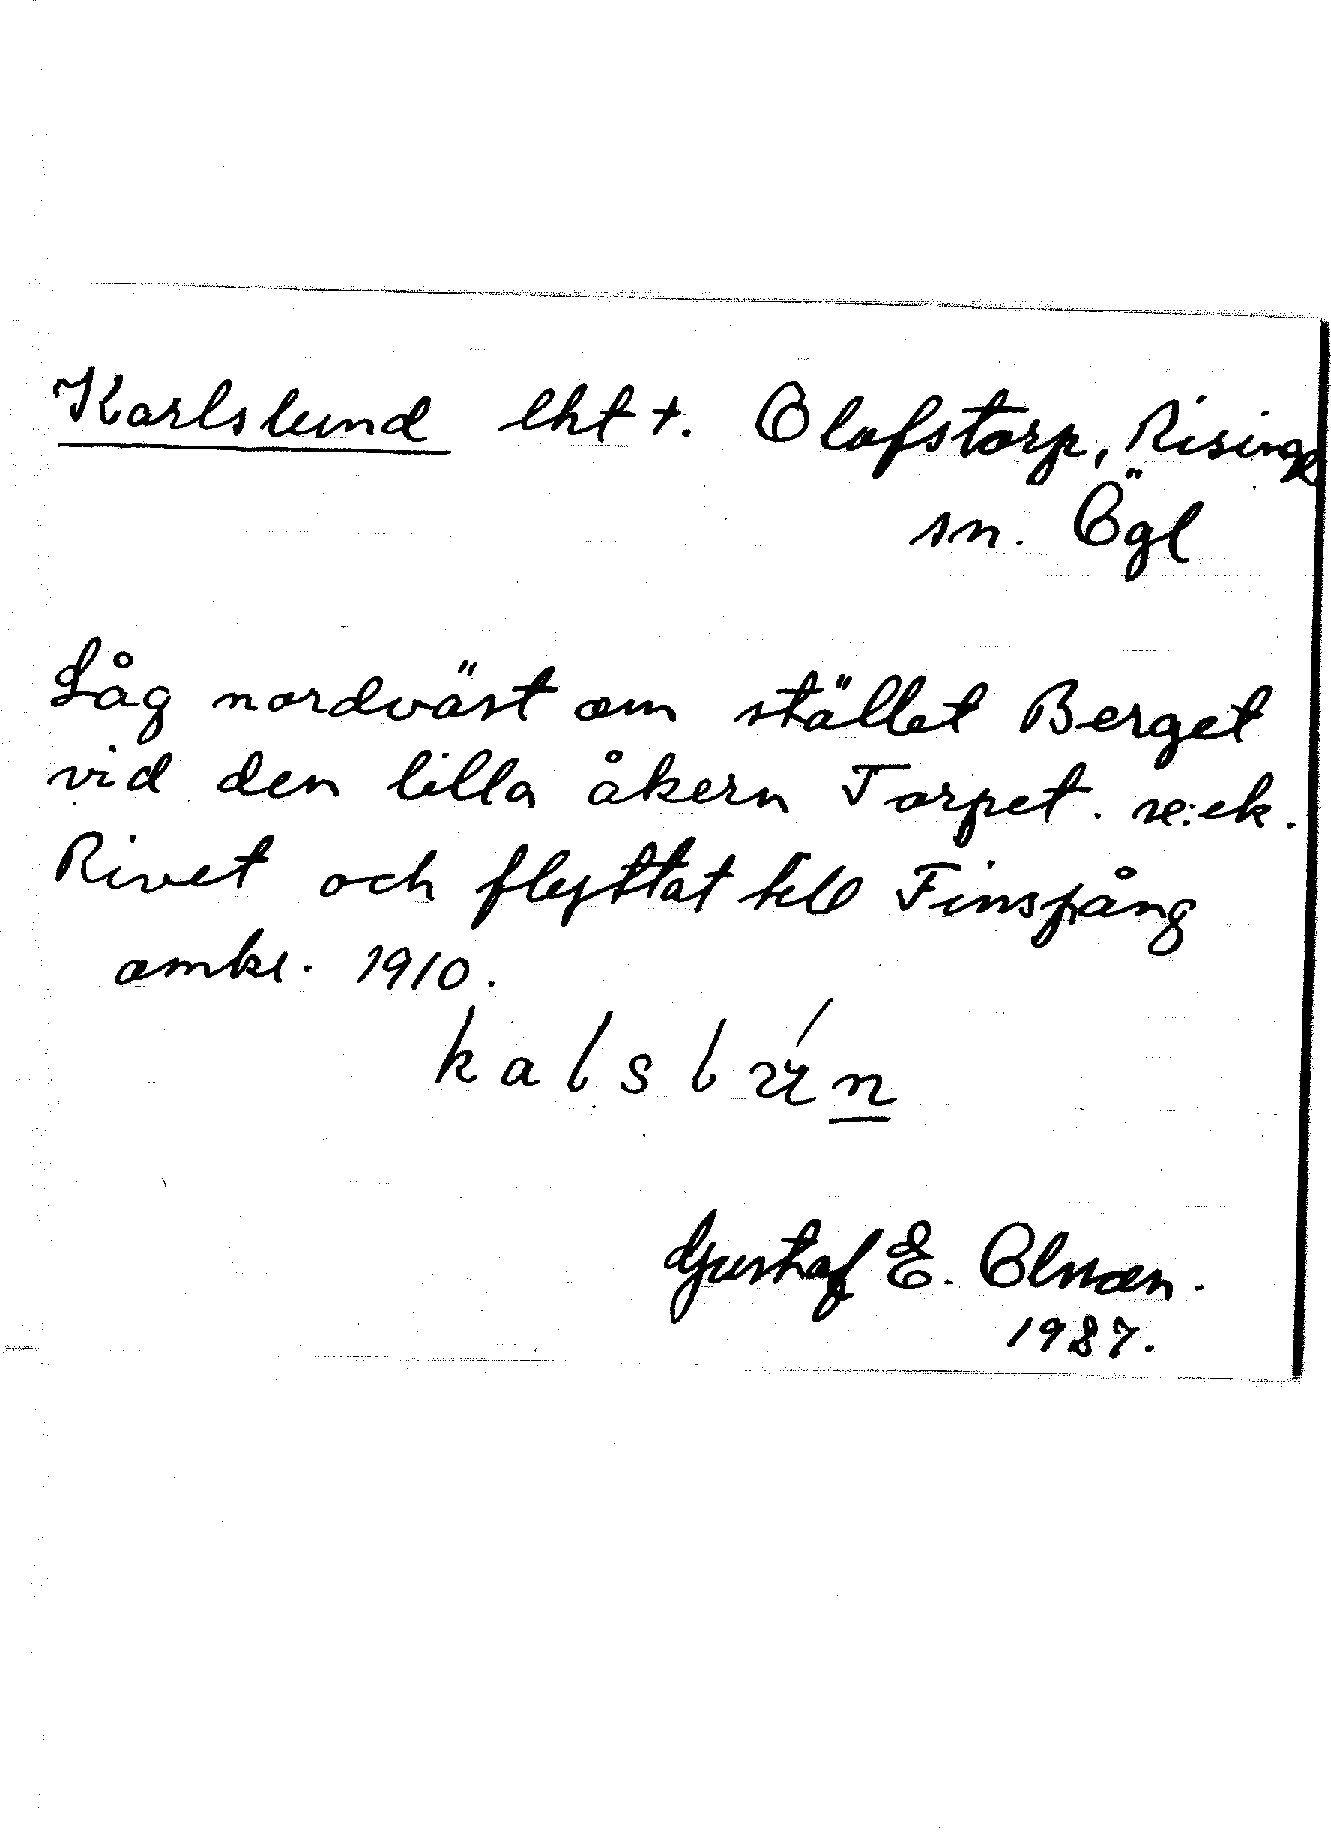 Karlslund lht t. Olofstorp, Risinge
sn. Ögl
Låg nordväst om stället Berget
vid den lilla åkern Torpet. se: ek.
Rivet och flyttat till Finspång
omkr. 1910.
Gustaf E. Olman.
1987.